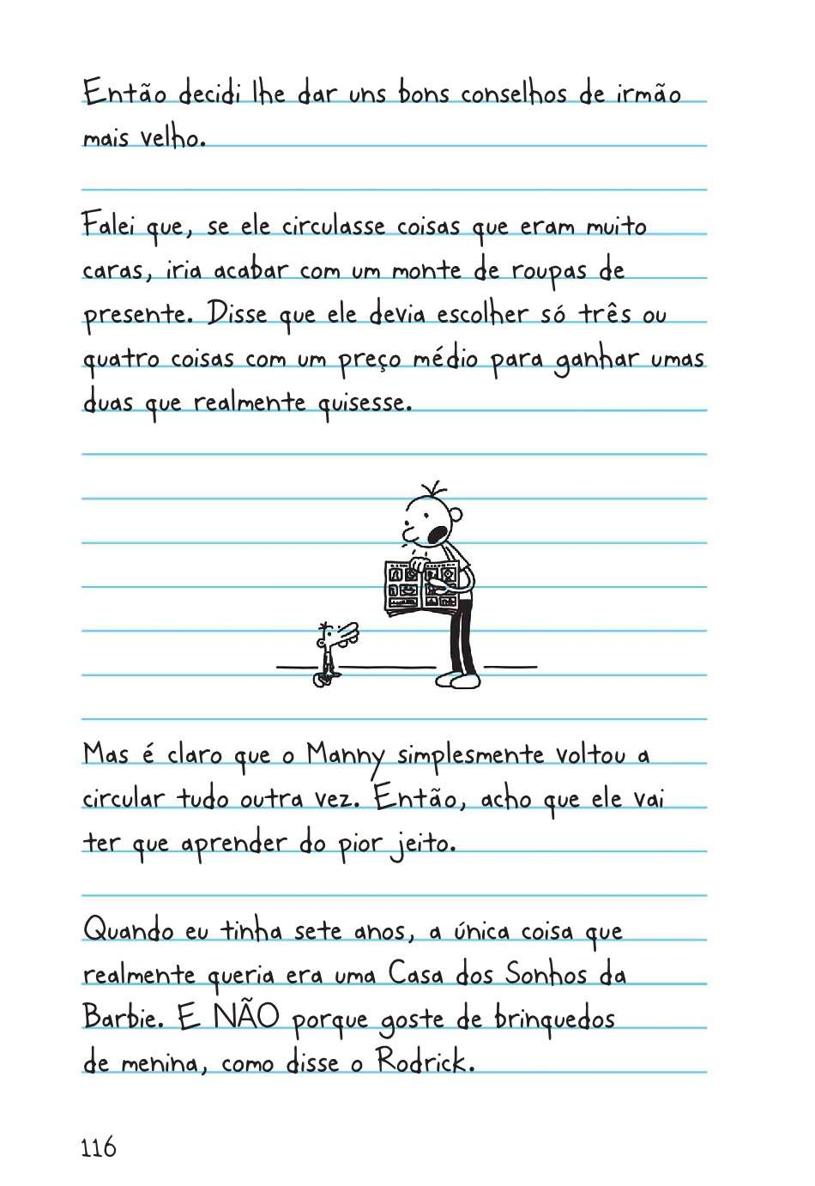 Então decidi lhe dar uns bons conselhos de irmão
mais velho.
Falei que, se ele circulasse coisas que eram muito
caras, iria acabar com um monte de roupas de
presente. Disse que ele devia escolher só três ou
quatro coisas com um preço médio para ganhar umas
duas que realmente quisesse.
Mas é claro que o Manny simplesmente voltou a
circular tudo outra vez. Então, acho que ele vai
ter que aprender do pior jeito.
Quando eu tinha sete anos, a única coisa que
realmente queria era uma Casa dos Sonhos da
Barbie. E NÃO porque goste de brinquedos
de menina, como disse o Rodrick.
116